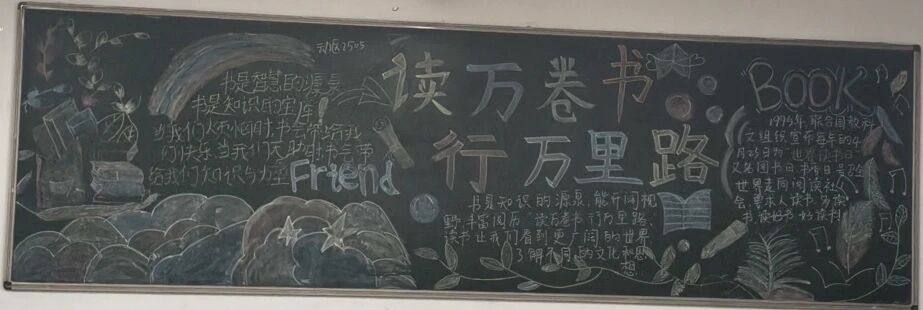 动医2505
读万卷书
行万里路
书是智慧的源泉
书是知识的宝库！
当我们大 小困时,书会带给我
们快乐,当我们无助时,书会带
给我们知识与力量
Friend
书是知识的源泉,能开阔视
野,丰富阅历."读万卷书 行万里路,
读书让我们看到更广阔的世界
了解不同的文化和思
想.
BOOK
1995年,联合国教科
文组织宣布每年的4
月23日为"世界读书日"
又名图书日,书香日
世界走向阅读社
会,要求人读书,多读
书,读好书,好读书